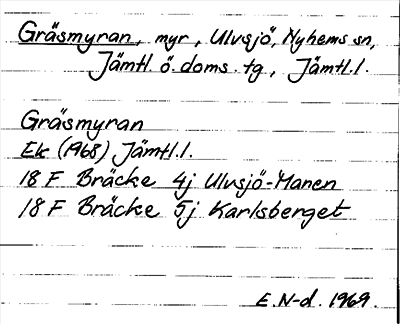 Gräsmyran, myr, Ulvsjö, Nyhems sn,
Jämtl. ö. doms. tg, Jämtl.l.
Gräsmyran
Ek (1968) Jämtl.l.
18 F Bräcke 4j Ulvsjö-Manen
18 F Bräcke 5j Karlsberget
E.N-d. 1969.